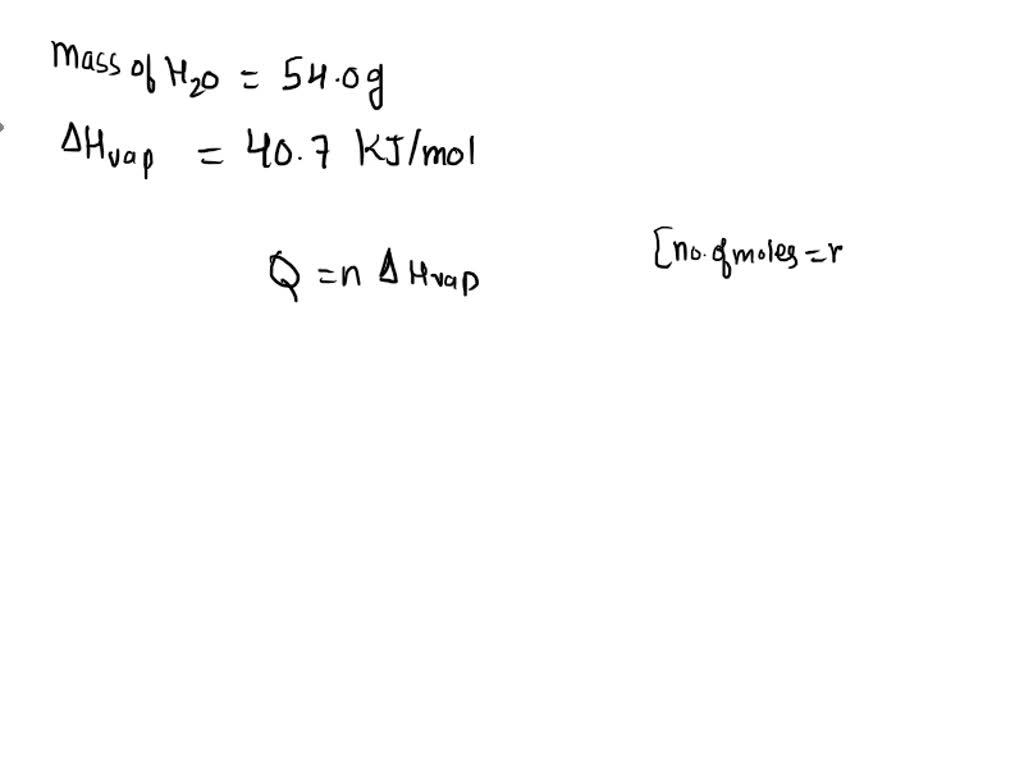 Mass of H₂O = 54.0g
ΔHvap = 40.7 KJ/mol
Q = n ΔHvap [no. of moles = r